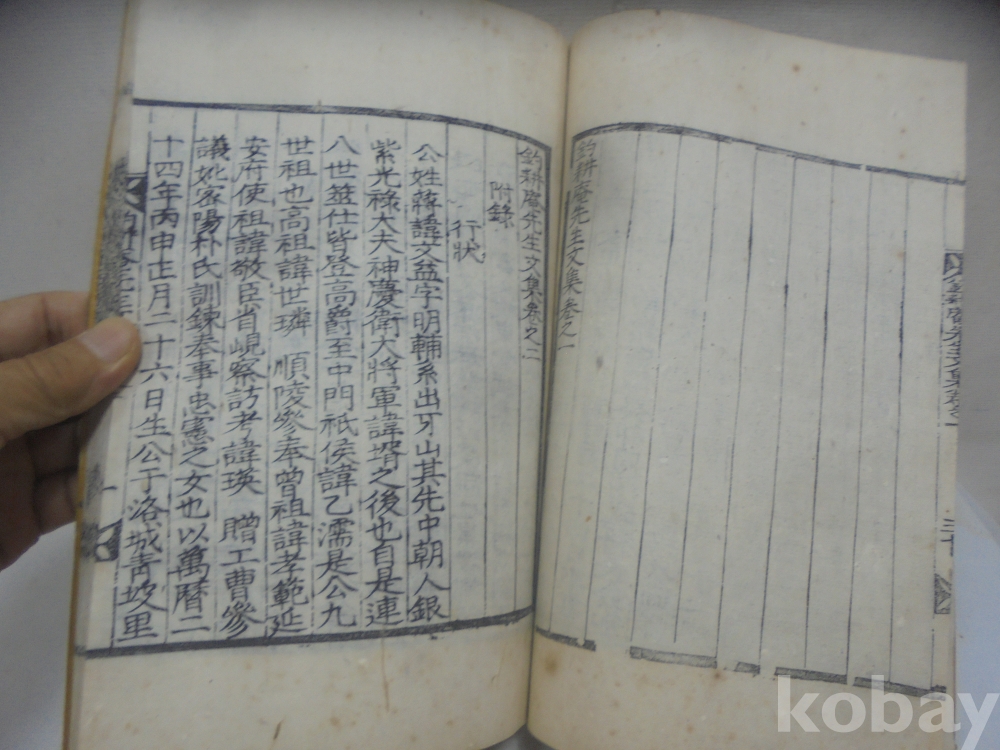 釣耕庵先生文集卷之一
釣耕庵先生文集卷之二
附錄
行狀
公姓蔣諱文益字明輔系出牙山其先中朝人銀
紫光祿大夫神慶衛大將軍諱壻之後也自是連
八世筮仕皆登高爵至中門祇侯諱乙濡是公九
世祖也高祖諱世璘 順陵參奉曾祖諱孝範延
安府使祖諱敬臣省峴察訪考諱瑛 贈工曹參
議妣密陽朴氏訓鍊奉事忠憲之女也以萬曆二
十四年丙申正月二十六日生公于洛城靑坡里
kobay